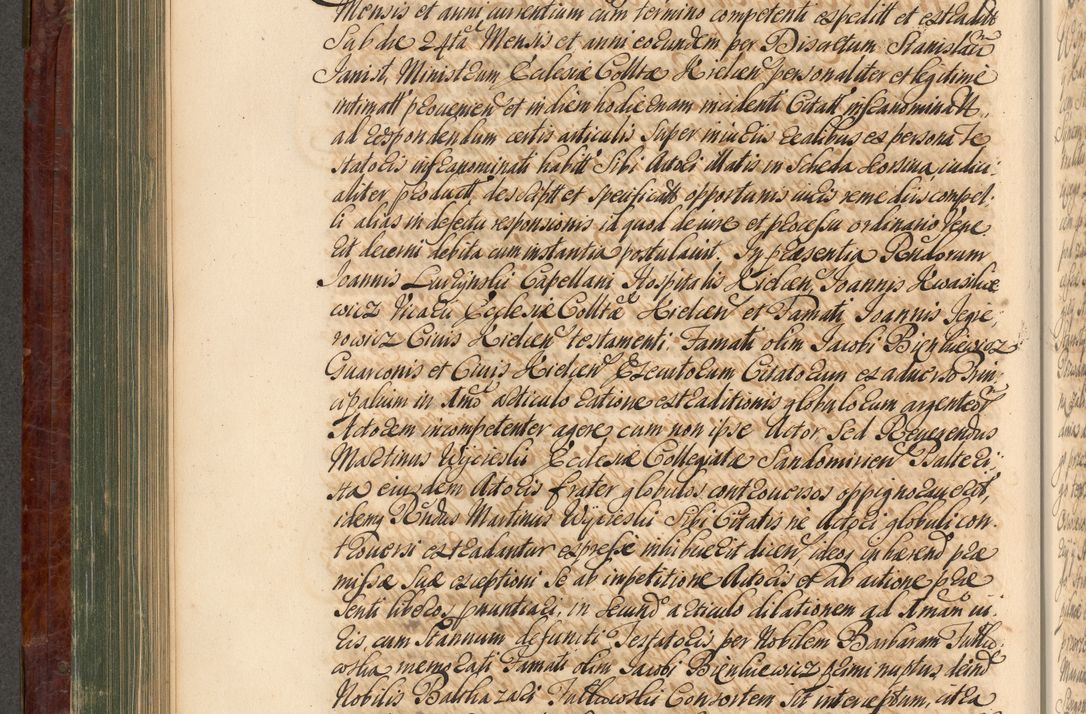 Mensis et anni currentium cum termino competenti expeditt et extradit
Sub die 24ta Mensis et anni eorundem per Discretum Stanislaum
Janist, Ministrum Ecclesiæ Colltæ Kielcen personaliter et legitime
intimatt provenien et in diem hodiernam incidenti Citatt infranominatt,
ad respondendum certis articulis super iniuriis realibus ex persona Te
statoris infranominati habitt Sibi Actori illatis in Scheda seorsiva iudici-
aliter product, descriptt et specificatt opportunis iuris remediis compel-
li alias in defectu responsionis id quod de iure et processu ordinario vene
rit decerni debita cum instantia postulavit. In præsentia Rndorum
Joannis Capellani Hospitalis Kielcen, Joannis Kwasnie
wicz Vicarii Ecclesiæ Colltæ Kielcen et Famati Joannis Jezie
rowicz Civis Kielcen testamenti Famati olim Jacobi Bienkiewicz
Guarconis et Civis Kielcen Executorum Citatorum ex adverso Prin
cipalium in Imo articulo ratione extraditionis globulorum argenteor
Actorem incompetenter agere cum non ipse Actor, Sed Reverendus
Martinus Wycieslii Ecclesiæ Collegiatæ Sandomirien Psalteri
sta eiusdem Actoris frater globulos controversos oppignoraverit,
idemq Rndus Martinus Wycieslii Sibi Citatis ne Actori globuli con
troversi extradantur expresse inhibuerit dicen ideoq inhærend præ
missæ Suæ exceptioni Se ab impetitione Actoris et ab actione præ
senti liberos pnuntiari, in Secund articulo dilationem ad Imam iu
ris, cum Stannum defuncti Testatoris per Nobilem Barbaram
memorati Famati olim Jacobi Bienkiewicz primi nuptus, deind
Nobilis Balthazari Consortem Sit interceptum, citra